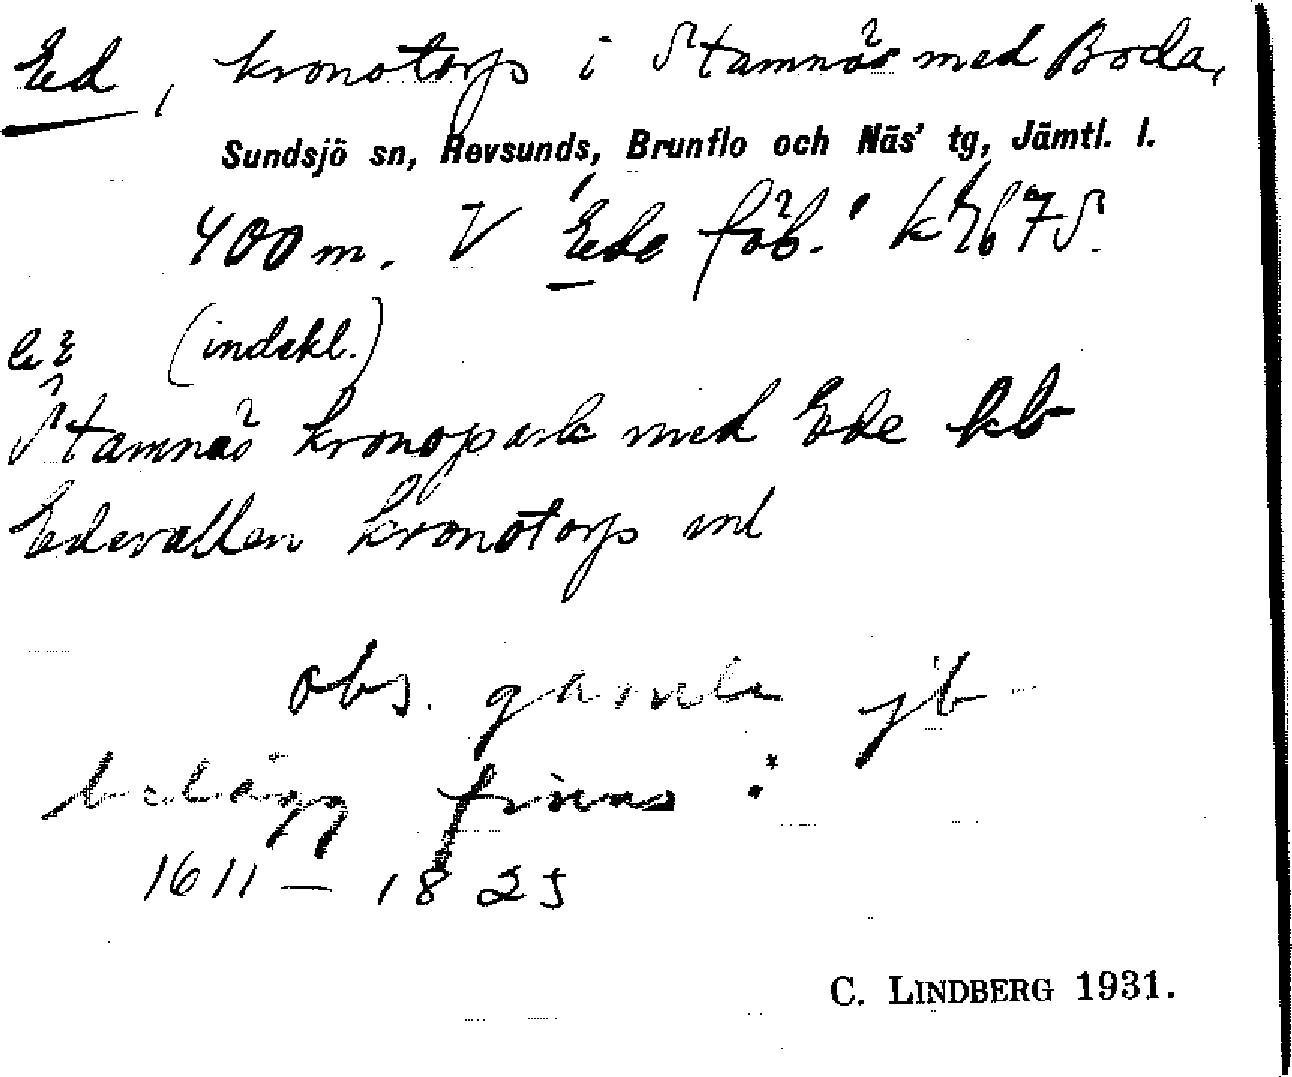 Ed, kronotorp i Stamnäs med Boda,
Sundsjö sn, Revsunds, Brunflo och Näs' tg, Jämtl. l.
400 m. V "Ede fäb." k 76 7 S.
(indekl.)
Stamnäs kronopark med Ede kb
Edevallen kronotorp
obs. gamla jb
belägg finns :
1611 – 1825
C. LINDBERG 1931.